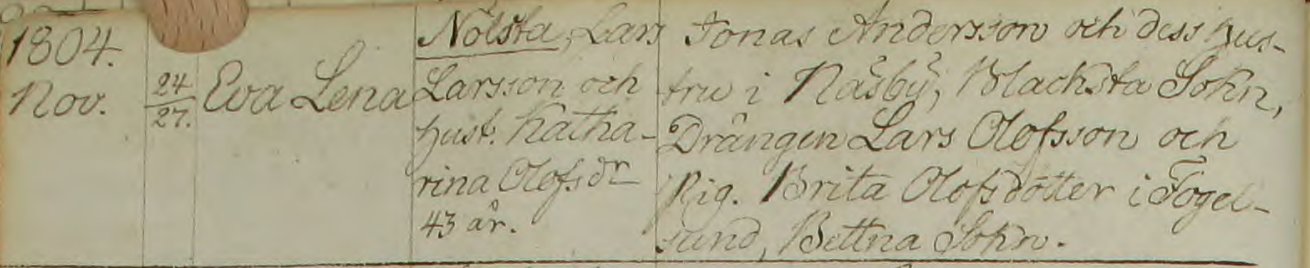 1804.
Nov.
24
27.
Eva Lena
Nölsta, Lars
Larsson och
hust. Katha-
rina Olofsdr
43 år.
Jonas Andersson och dess hus-
tru i Näsby, Blacksta Sokn,
Drängen Lars Olofsson och
Pig. Brita Olofsdotter i Fogel-
sund, Bettna Sokn.